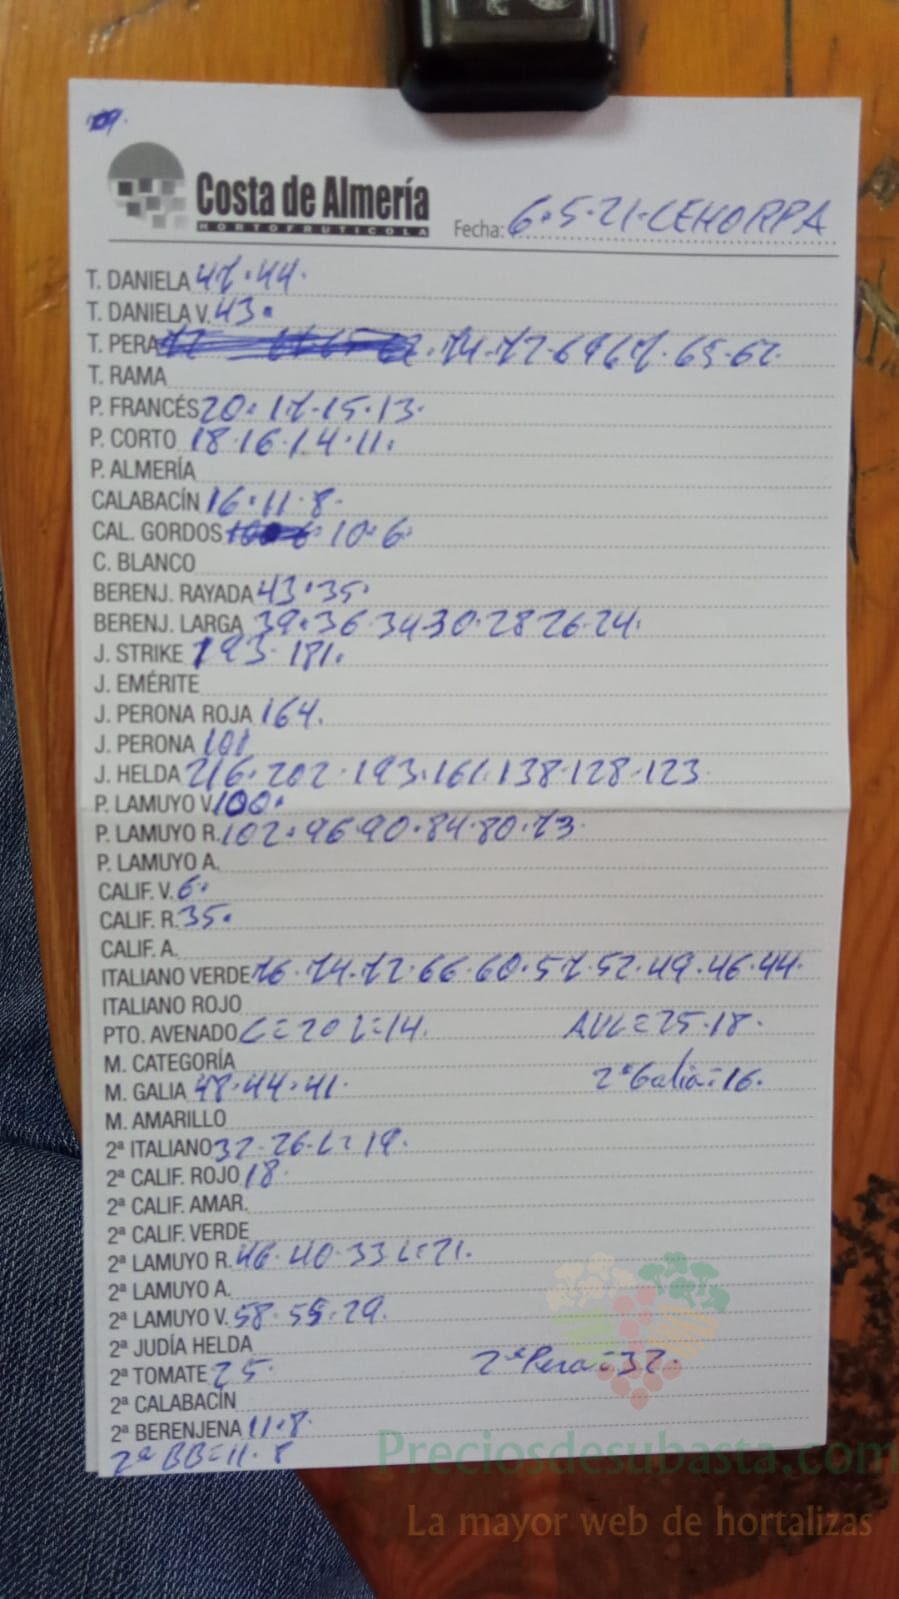 Costa de Almería
HORTOFRUTICOLA
Fecha: 6·5·21·CEHORPA
T. DANIELA 47·44·
T. DANIELA V. 43·
T. PERA 74·72·69 67·65·62
T. RAMA
P. FRANCÉS 20·17·15·13·
P. CORTO 18·16·14·11·
P. ALMERÍA
CALABACÍN 16·11·8·
CAL. GORDOS 10·6·
C. BLANCO
BERENJ. RAYADA 43·35·
BERENJ. LARGA 39·36·34·30·28·26·24·
J. STRIKE 193·181·
J. EMÉRITE
J. PERONA ROJA 164·
J. PERONA 101
J. HELDA 216·202·193·161·138·128·123
P. LAMUYO V. 100·
P. LAMUYO R. 102·96·90·84·80·73·
P. LAMUYO A.
CALIF. V. 6·
CALIF. R. 35·
CALIF. A.
ITALIANO VERDE 76·74·72·66·60·57·52·49·46·44·
ITALIANO ROJO
PTO. AVENADO C=20 L=14· AVL=25·18·
M. CATEGORÍA
M. GALIA 48·44·41· 2ª Galia=16·
M. AMARILLO
2ª ITALIANO 32·26·L=19·
2ª CALIF. ROJO 18·
2ª CALIF. AMAR.
2ª CALIF. VERDE
2ª LAMUYO R. 46·40·33 L=21·
2ª LAMUYO A.
2ª LAMUYO V. 58·55·29·
2ª JUDÍA HELDA
2ª TOMATE 25· 2ª Pera=32·
2ª CALABACÍN
2ª BERENJENA 11·8·
2ª BB=11·8
Preciosdesubasta.com
La mayor web de hortalizas